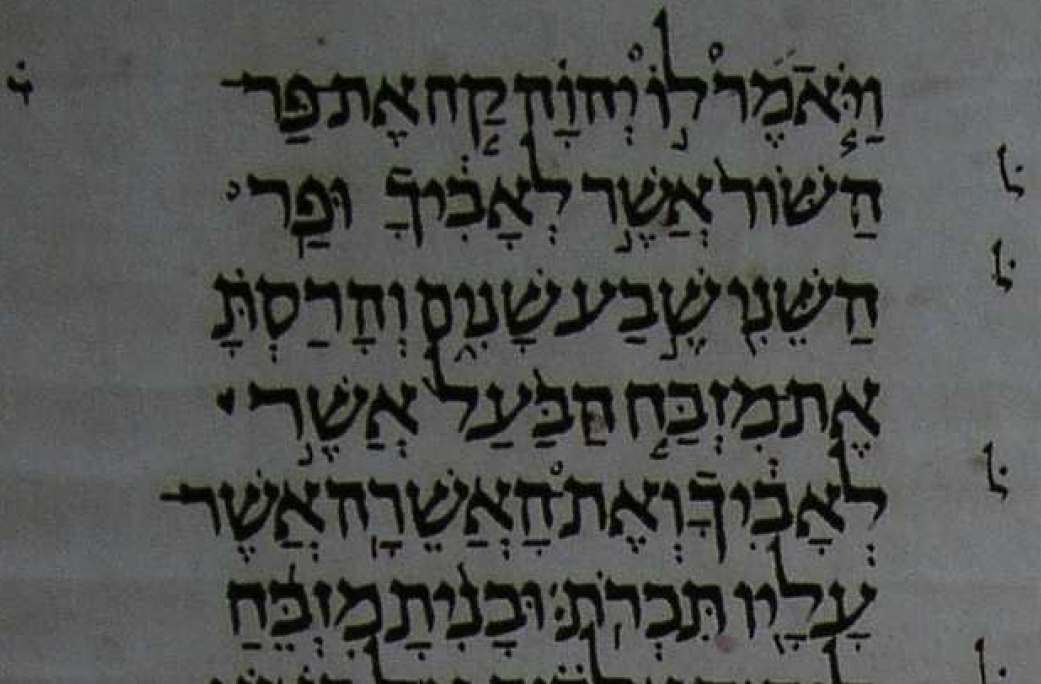 וַיֹּאמֶר לוֹ יְהוָה קַח אֶת־פַּר־
הַשּׁוֹר אֲשֶׁר לְאָבִיךָ וּפַר
הַשֵּׁנִי שֶׁבַע שָׁנִים וְהָרַסְתָּ
אֶת־מִזְבַּח הַבַּעַל אֲשֶׁר
לְאָבִיךָ וְאֶת־הָאֲשֵׁרָה אֲשֶׁר־
עָלָיו תִּכְרֹת׃ וּבָנִיתָ מִזְבֵּחַ